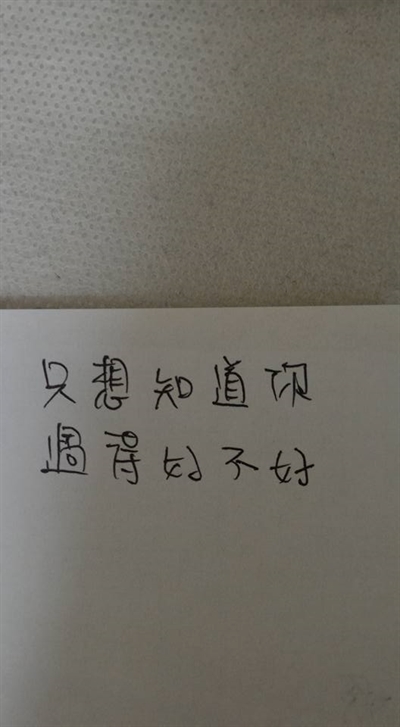 只想知道你
過得好不好